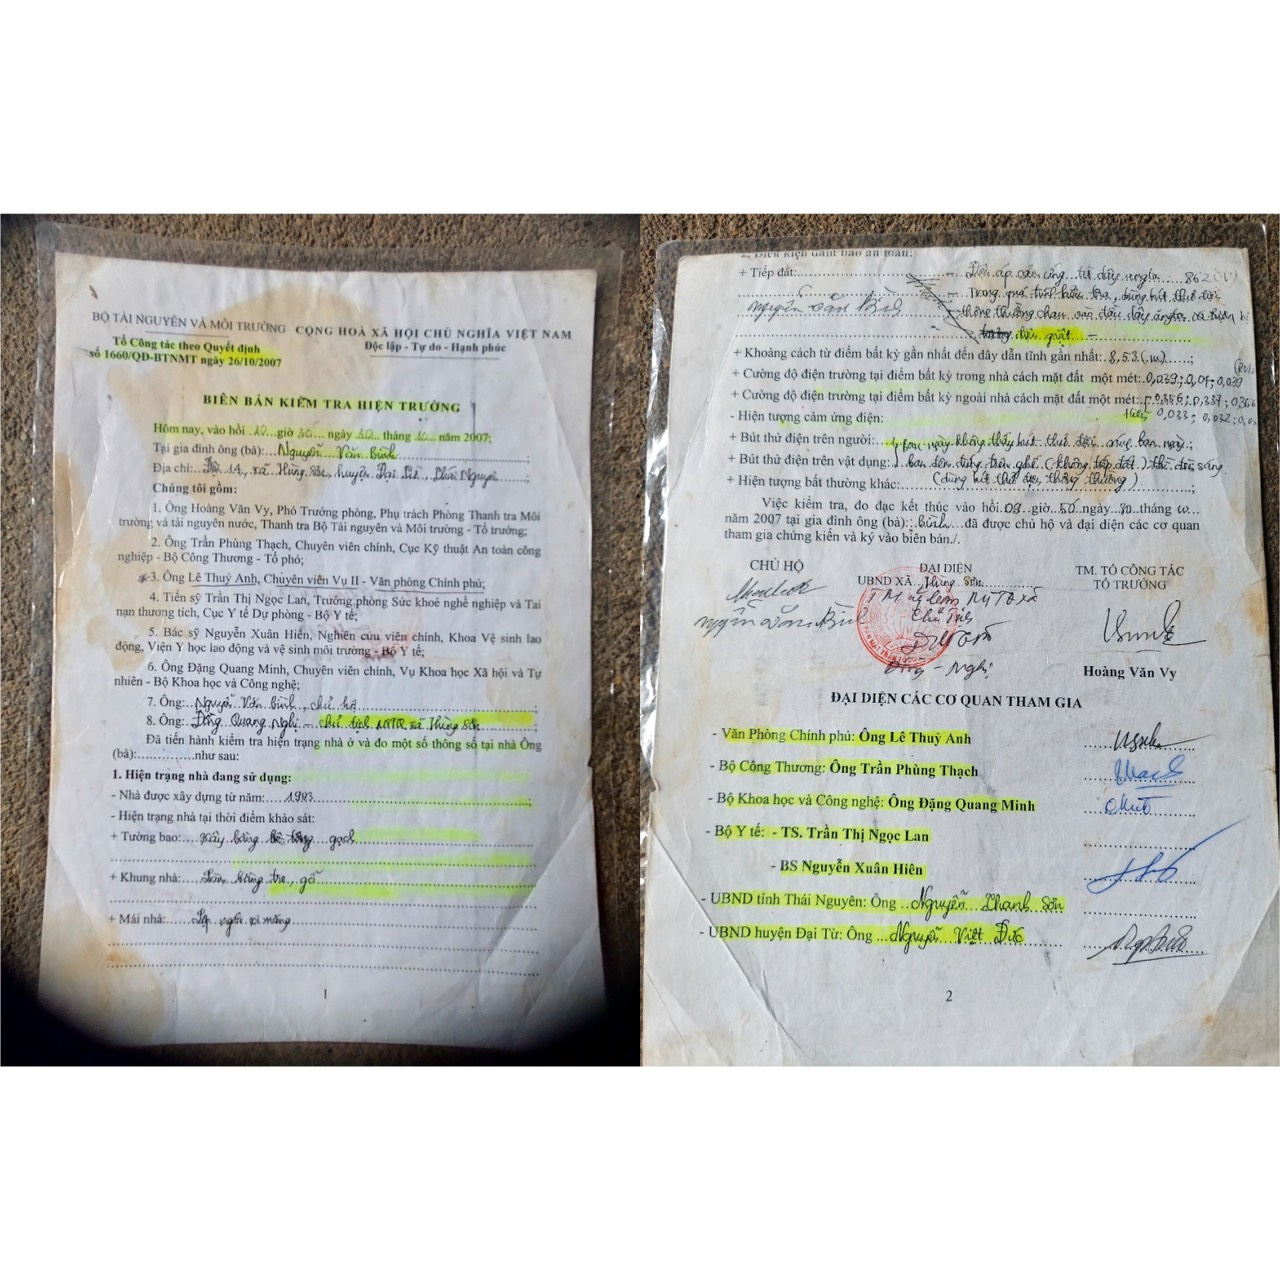 BỘ TÀI NGUYÊN VÀ MÔI TRƯỜNG
Tổ Công tác theo Quyết định
số 1660/QĐ-BTNMT ngày 26/10/2007
CỘNG HOÀ XÃ HỘI CHỦ NGHĨA VIỆT NAM
Độc lập - Tự do - Hạnh phúc
BIÊN BẢN KIỂM TRA HIỆN TRƯỜNG
Hôm nay, vào hồi giờ 30 ngày 30 tháng 10 năm 2007;
Tại gia đình ông (bà): Nguyễn Văn Bình
Địa chỉ: Đội 14, xã Hùng Sơn, huyện Đại Từ, Thái Nguyên
Chúng tôi gồm:
1. Ông Hoàng Văn Vy, Phó Trưởng phòng, Phụ trách Phòng Thanh tra Môi
trường và tài nguyên nước, Thanh tra Bộ Tài nguyên và Môi trường - Tổ trưởng;
2. Ông Trần Phùng Thạch, Chuyên viên chính, Cục Kỹ thuật An toàn công
nghiệp - Bộ Công Thương - Tổ phó;
3. Ông Lê Thuỷ Anh, Chuyên viên Vụ II - Văn phòng Chính phủ;
4. Tiến sỹ Trần Thị Ngọc Lan, Trưởng phòng Sức khoẻ nghề nghiệp và Tai
nạn thương tích, Cục Y tế Dự phòng - Bộ Y tế;
5. Bác sỹ Nguyễn Xuân Hiến, Nghiên cứu viên chính, Khoa Vệ sinh lao
động, Viện Y học lao động và vệ sinh môi trường - Bộ Y tế;
6. Ông Đặng Quang Minh, Chuyên viên chính, Vụ Khoa học Xã hội và Tự
nhiên - Bộ Khoa học và Công nghệ;
7. Ông: Nguyễn Văn Bình, chủ hộ
8. Ông: Đồng Quang Nghị - chủ tịch MTTQ xã Hùng Sơn
Đã tiến hành kiểm tra hiện trạng nhà ở và đo một số thông số tại nhà Ông
(bà):...............như sau:
1. Hiện trạng nhà đang sử dụng:
- Nhà được xây dựng từ năm: 1993
- Hiện trạng nhà tại thời điểm khảo sát:
+ Tường bao: Xây bằng bê tông gạch
+ Khung nhà: Làm bằng tre, gỗ
+ Mái nhà: Lợp ngói xi măng
1
2. Điều kiện đảm bảo an toàn:
+ Tiếp đất: - Điện áp cảm ứng từ dây
- Trong quá trình kiểm tra, dùng bút thử điện
Nguyễn Văn Bình thông thường
giật
+ Khoảng cách từ điểm bất kỳ gần nhất đến dây dẫn tĩnh gần nhất: 8,53 (m)
+ Cường độ điện trường tại điểm bất kỳ trong nhà cách mặt đất một mét: 0,039; 0,04; 0,039
+ Cường độ điện trường tại điểm bất kỳ ngoài nhà cách mặt đất một mét:
- Hiện tượng cảm ứng điện: 0,033; 0,032;
+ Bút thử điện trên người: không thấy bút thử điện sáng ban ngày
+ Bút thử điện trên vật dụng: đứng trên ghế (không tiếp đất) thì đèn sáng
+ Hiện tượng bất thường khác: (dùng bút thử điện thông thường)
Việc kiểm tra, đo đạc kết thúc vào hồi 09 giờ 50 ngày 30 tháng 10
năm 2007 tại gia đình ông (bà): Bình đã được chủ hộ và đại diện các cơ quan
tham gia chứng kiến và ký vào biên bản./.
CHỦ HỘ
Nguyễn Văn Bình
ĐẠI DIỆN
UBND XÃ Hùng Sơn
Chủ tịch
Nghị
TM. TỔ CÔNG TÁC
TỔ TRƯỞNG
Hoàng Văn Vy
ĐẠI DIỆN CÁC CƠ QUAN THAM GIA
- Văn Phòng Chính phủ: Ông Lê Thuỷ Anh
- Bộ Công Thương: Ông Trần Phùng Thạch
- Bộ Khoa học và Công nghệ: Ông Đặng Quang Minh
- Bộ Y tế: - TS. Trần Thị Ngọc Lan
- BS Nguyễn Xuân Hiên
- UBND tỉnh Thái Nguyên: Ông Nguyễn Thanh Sơn
- UBND huyện Đại Từ: Ông Nguyễn Việt Đức
2